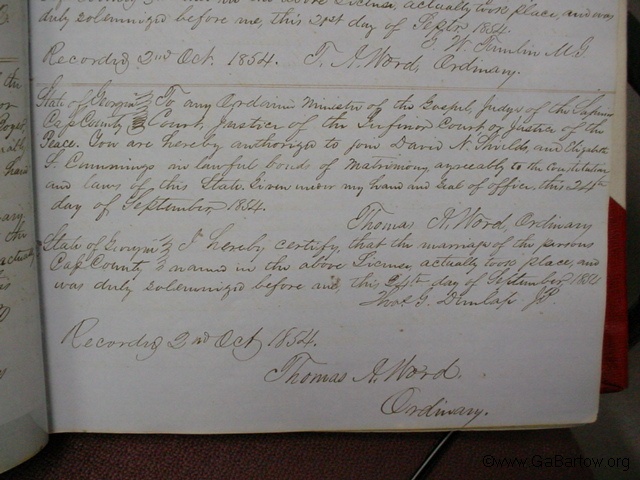 the above License, actually took place, and was
duly solemnized before me, this 21st day of Septr 1854.
W. Tumlin M.G
Recorded 2nd Oct. 1854. T. A. Word, Ordinary.
State of Georgia To any Ordained Minister of the Gospel, Judge of the Superior
Cass County Court, Justice of the Inferior Court or Justice of the
Peace. You are hereby authorized to join David N. Shields, and Elizabeth
F. Cummings in lawful bonds of Matrimony, agreeably to the Constitution
and laws of this State. Given under my hand and seal of office, this 24th
day of September 1854.
Thomas A. Word, Ordinary
State of Georgia I hereby certify, that the marriage of the persons
Cass County named in the above License, actually took place, and
was duly solemnized before me, this 24th day of September 1854
Thos. G. Dunlap JP.
Recorded 2nd Oct 1854.
Thomas A. Word.
Ordinary.
the
or
hand
the
actually
©www.GaBartow.org